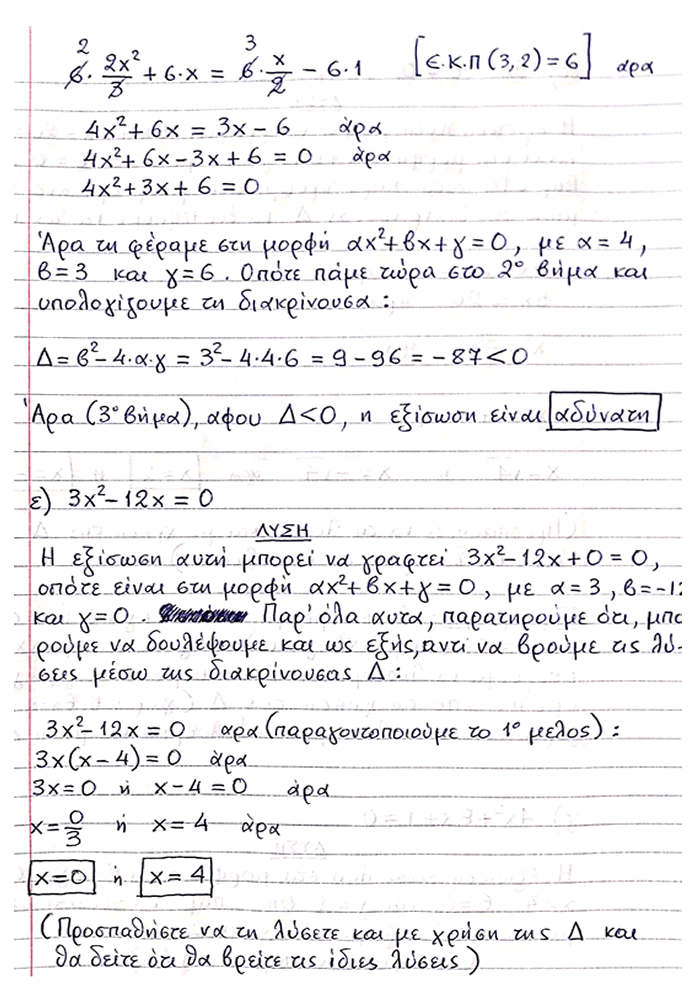 2 3
6 · 2x²/3 + 6·x = 6 · x/2 − 6·1 [Ε.Κ.Π (3, 2) = 6] άρα
4x² + 6x = 3x − 6 άρα
4x² + 6x − 3x + 6 = 0 άρα
4x² + 3x + 6 = 0
Άρα τη φέραμε στη μορφή αx² + βx + γ = 0, με α = 4,
β = 3 και γ = 6. Οπότε πάμε τώρα στο 2ο βήμα και
υπολογίζουμε τη διακρίνουσα:
Δ = β² − 4·α·γ = 3² − 4·4·6 = 9 − 96 = −87 < 0
Άρα (3ο βήμα), αφου Δ < 0, η εξίσωση είναι αδύνατη
ε) 3x² − 12x = 0
ΛΥΣΗ
Η εξίσωση αυτή μπορεί να γραφτεί 3x² − 12x + 0 = 0,
οπότε είναι στη μορφή αx² + βx + γ = 0, με α = 3, β = −12
και γ = 0. Παρ' όλα αυτα, παρατηρούμε ότι, μπο
ρούμε να δουλέψουμε και ως εξής, αντι να βρούμε τις λύ-
σεις μέσω της διακρίνουσας Δ:
3x² − 12x = 0 αρα (παραγοντοποιούμε το 1ο μελος):
3x(x − 4) = 0 άρα
3x = 0 ή x − 4 = 0 άρα
x = 0/3 ή x = 4 άρα
x = 0 ή x = 4
(Προσπαθήστε να τη λύσετε και με χρήση της Δ και
θα δείτε ότι θα βρείτε τις ίδιες λύσεις)